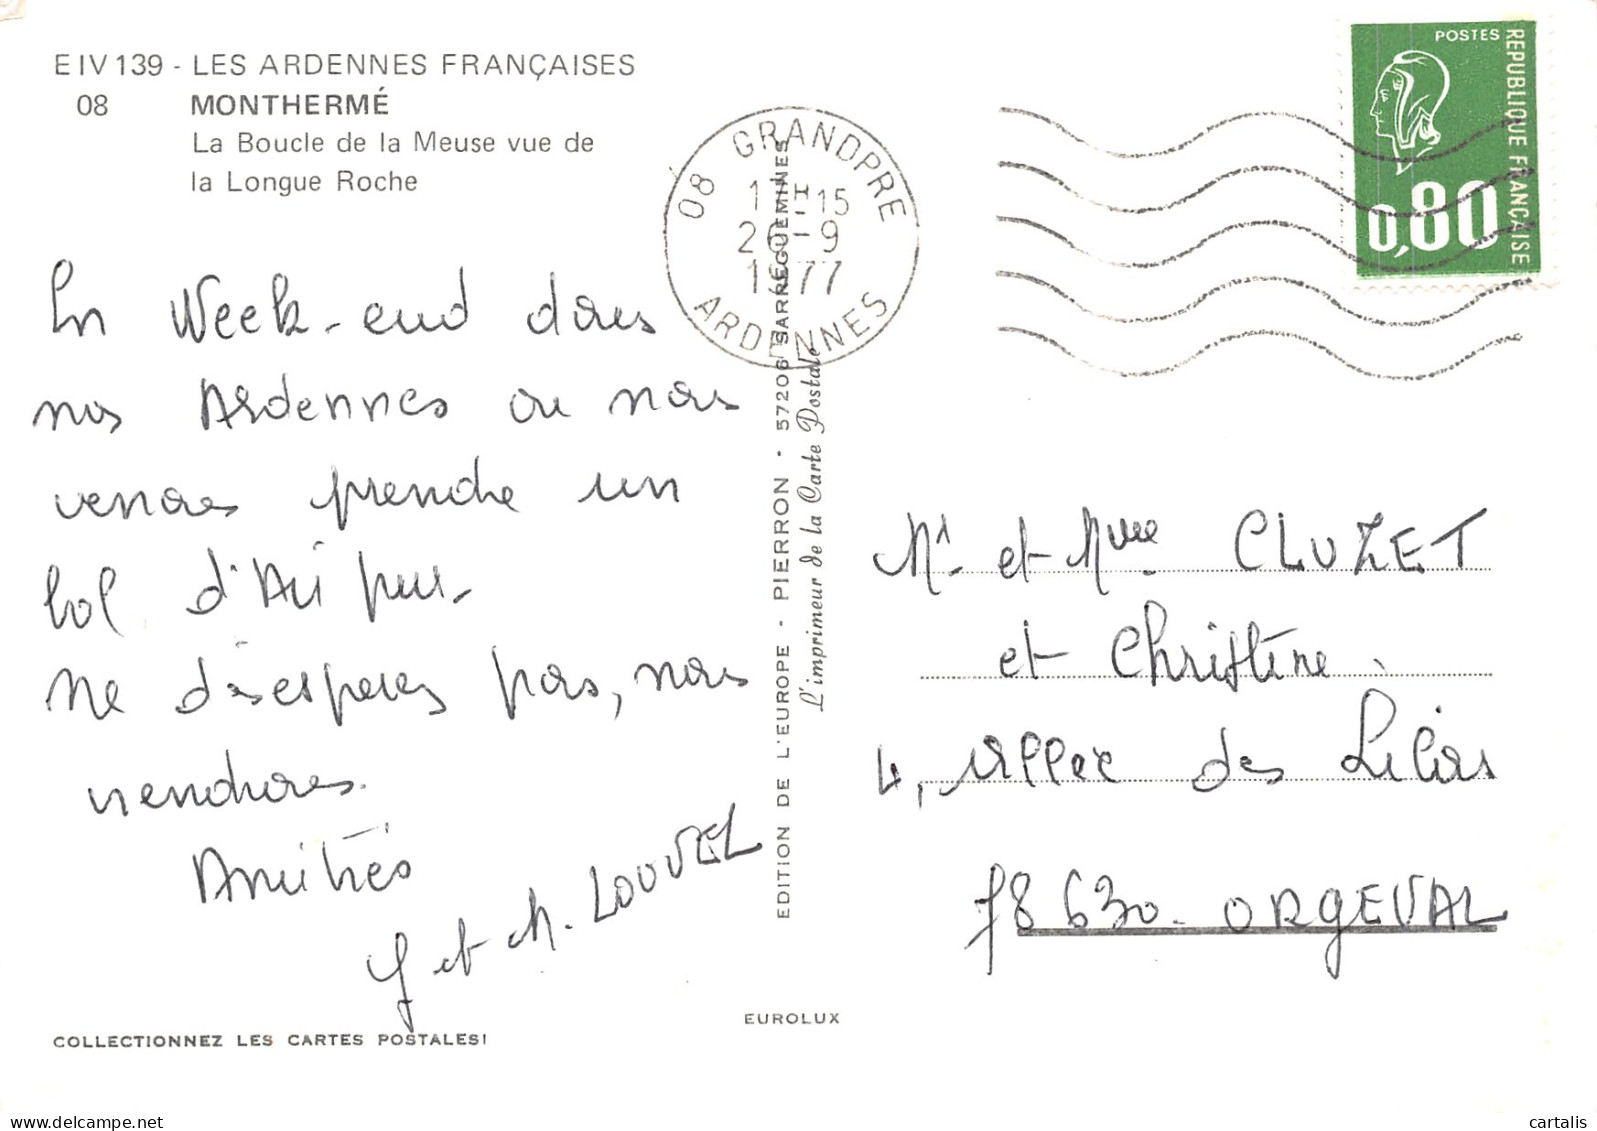 E IV 139 - LES ARDENNES FRANÇAISES
08 MONTHERMÉ
La Boucle de la Meuse vue de
la Longue Roche
08 GRANDPRE
17H15
26-9
1977
ARDENNES
POSTES
REPUBLIQUE FRANÇAISE
0,80
En Week-end dans
nos Ardennes ou nous
venons prendre un
bol d'Air pur.
Ne désesperez pas, nous
viendrons.
Amitiés
J et M. LOUVEL
EDITION DE L'EUROPE - PIERRON - 57206 SARREGUEMINES
L'imprimeur de la Carte Postale
Mr et Mme CLUZET
et Christine.
4, Allée des Lilas
78630 - ORGEVAL
EUROLUX
COLLECTIONNEZ LES CARTES POSTALES!
cartalis
delcampe.net